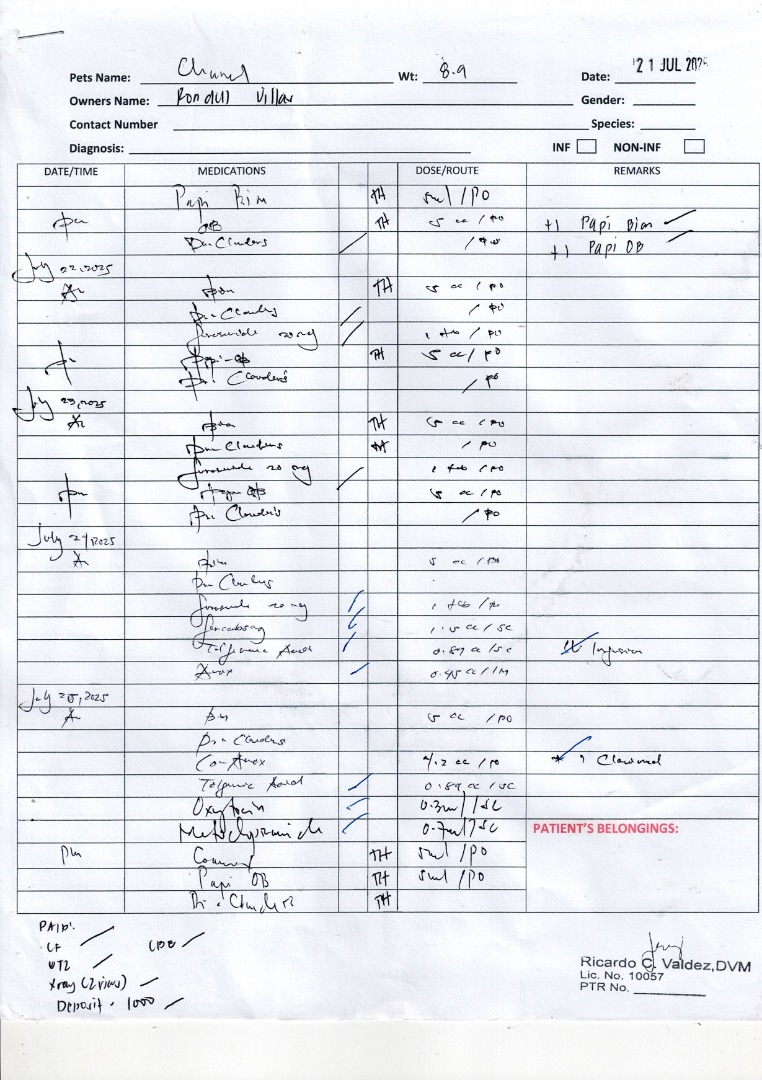 Pets Name: Chanel Wt: 8.9 Date: 21 JUL 2025
Owners Name: Rondell Villar Gender:
Contact Number Species:
Diagnosis: INF NON-INF
DATE/TIME MEDICATIONS DOSE/ROUTE REMARKS
Papi TH 5ml /PO
pm OB TH 5 cc / PO +1 Papi
Dr. Clauders / PO +1 Papi OB
July 22, 2025
TH 5 cc / PO
Dr. Clauders / PO
Furosemide 20 mg 1 tab / PO
Papi-OB TH 5 cc / PO
Dr. Clauders / PO
July 23, 2025
TH 5 cc / PO
Dr. Clauders TH / PO
Furosemide 20 mg 1 tab / PO
pm OB 5 cc / PO
Dr. Clauders / PO
July 24, 2025
5 cc / PO
Dr. Clauders
Furosemide 20 mg 1 tab / PO
1.5 cc / SC
Tolfenamic Acid 0.89 cc / SC
0.45 cc / IM
July 25, 2025
5 cc / PO
Dr. Clauders
Co-Amox 4.2 cc / PO
Tolfenamic Acid 0.89 cc / SC
Oxytocin 0.3ml / SC
Metoclopramide 0.7ml / SC PATIENT'S BELONGINGS:
pm TH 5ml / PO
Papi OB TH 5ml / PO
Dr. Clauders TH
PAID:
CF CBC
UTZ
Xray (2 views)
Deposit - 1000
Ricardo C. Valdez, DVM
Lic. No. 10057
PTR No.